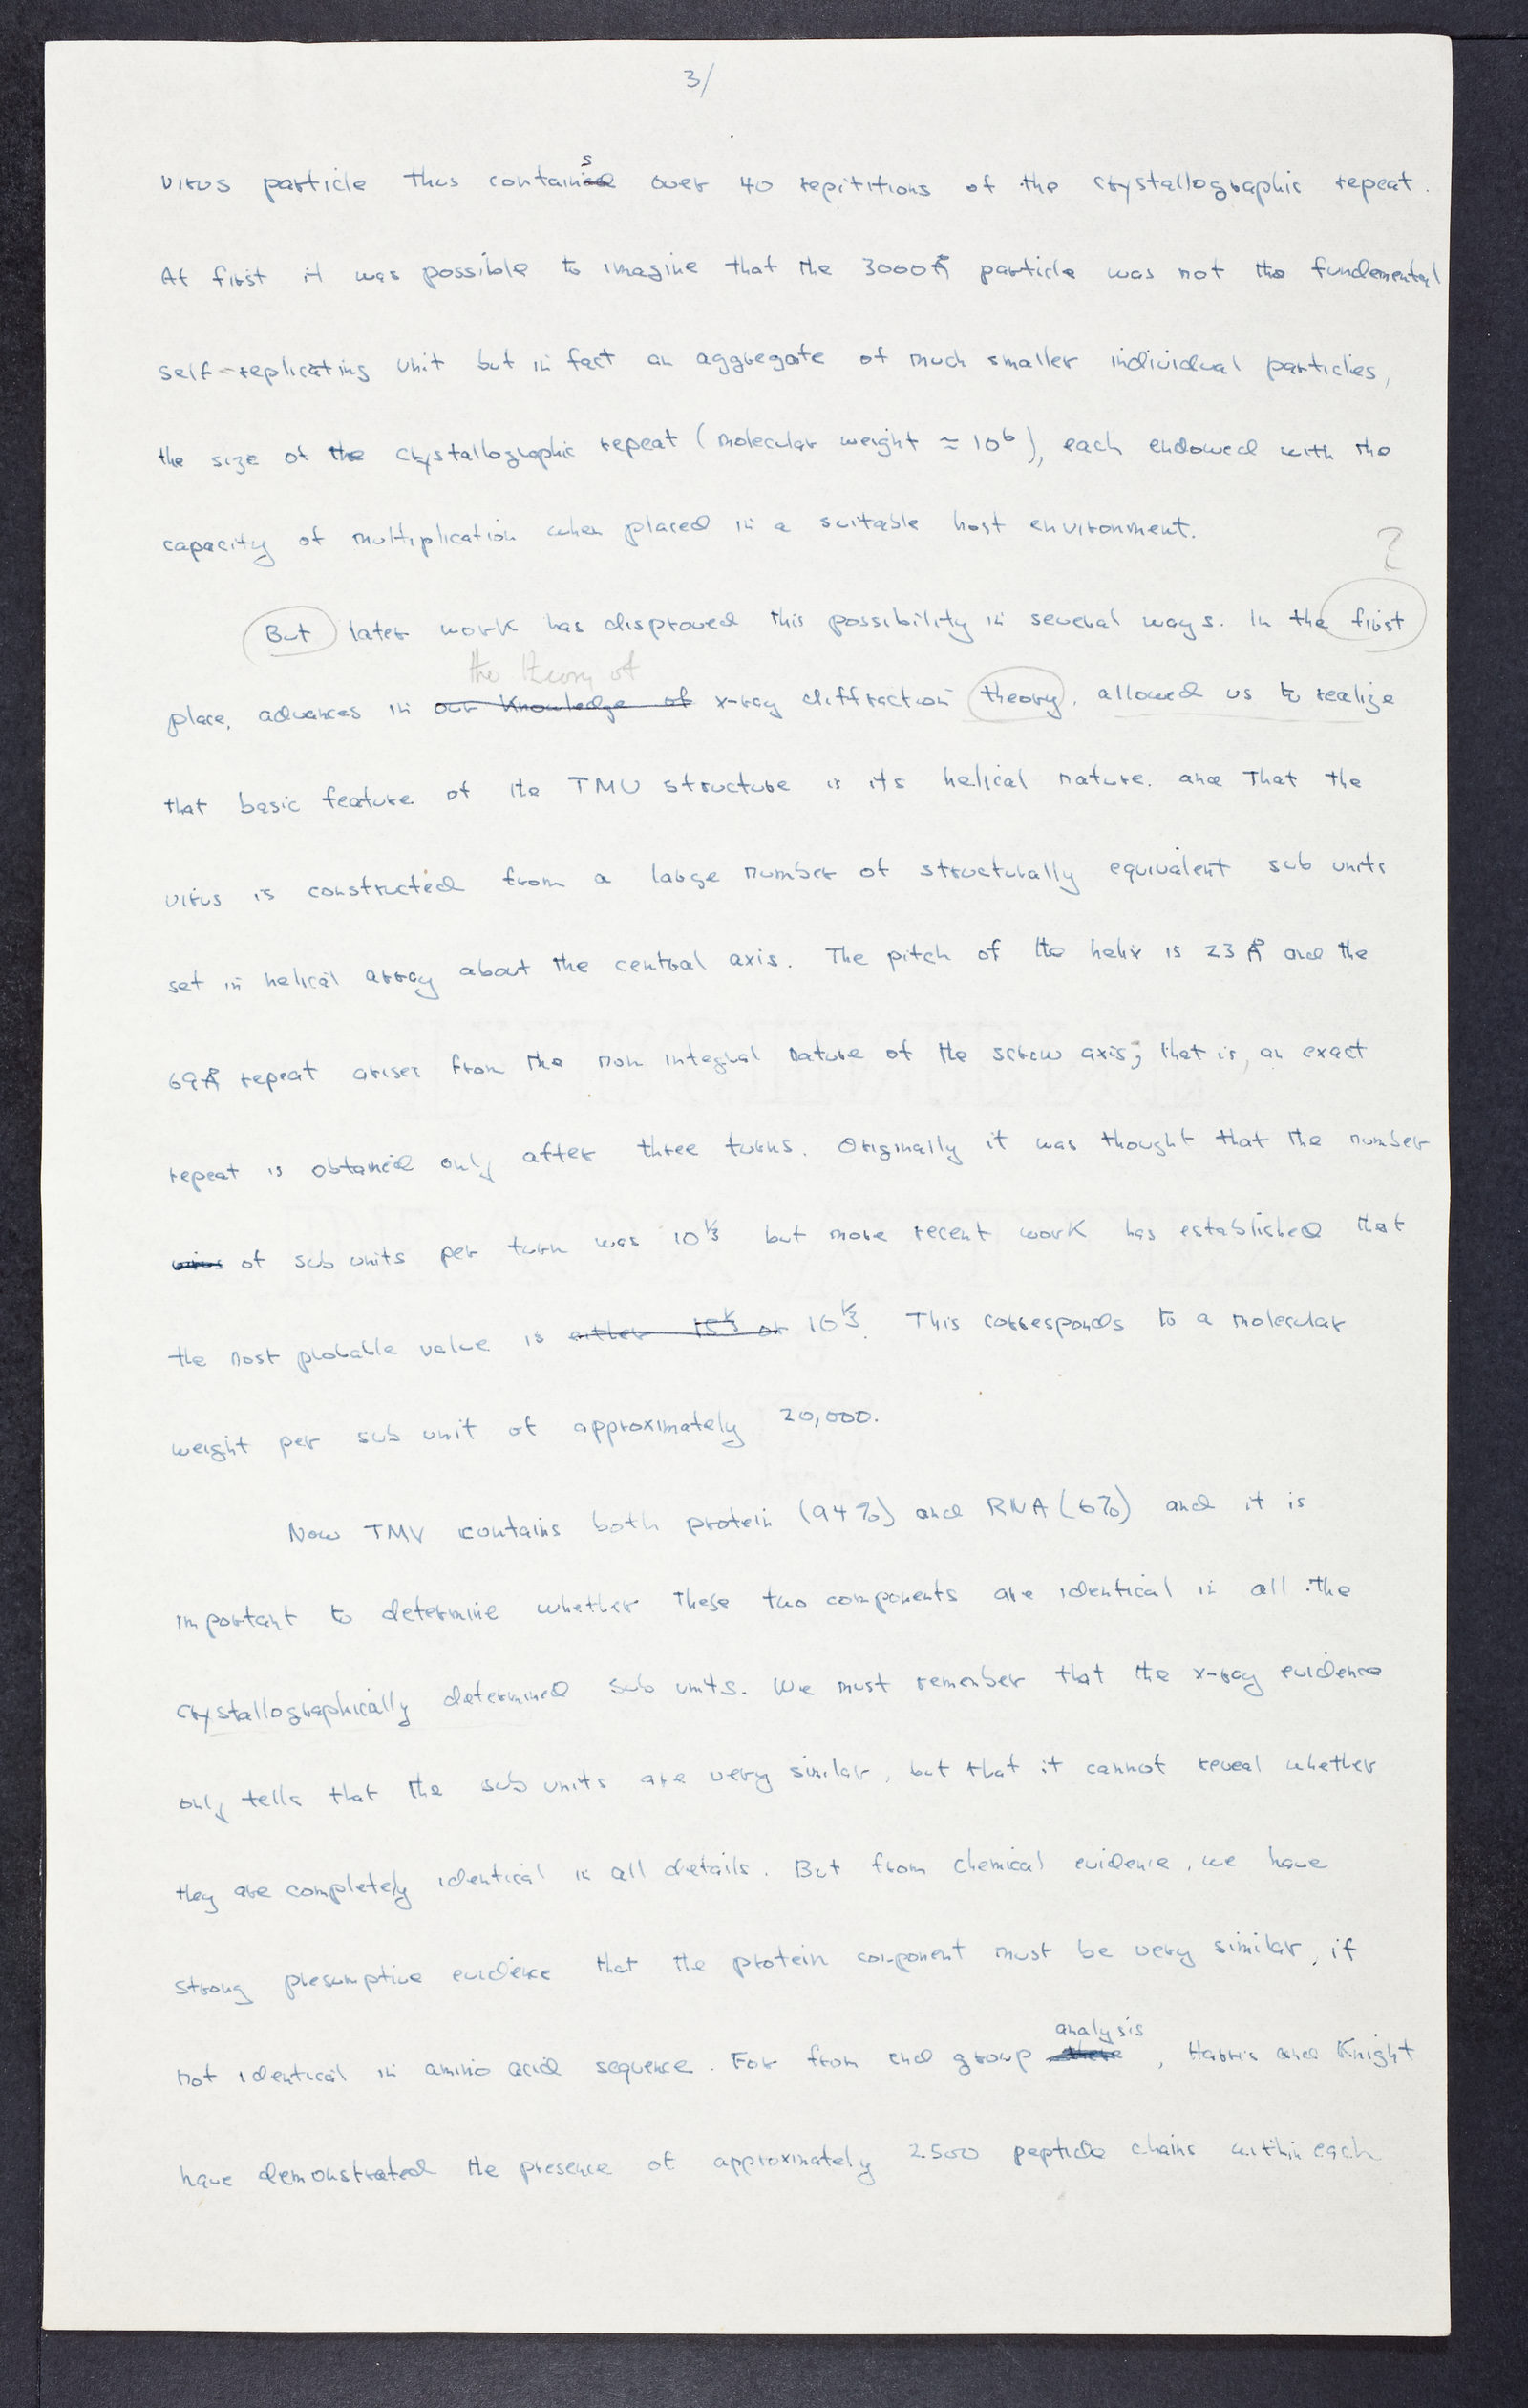 3/
virus particle thus contains over 40 repititions of the crystallographic repeat.
At first it was possible to imagine that the 3000Å particle was not the fundemental
self-replicating unit but in fact an aggregate of much smaller individual particles,
the size of the crystallographic repeat (molecular weight ≈ 10⁶), each endowed with the
capacity of multiplication when placed in a suitable host environment.
?
But later work has disproved this possibility in several ways. In the first
the theory of
place, advances in our knowledge of x-ray diffraction theory, allowed us to realize
that basic feature of the TMV structure is its helical nature. and That the
virus is constructed from a large number of structurally equivalent sub units
set in helical array about the central axis. The pitch of the helix is 23 Å and the
69Å repeat arises from the non integral nature of the screw axis; that is, an exact
repeat is obtained only after three turns. Originally it was thought that the number
virus of sub units per turn was 10⅓ but more recent work has established that
the most probable value is either 15⅓ or 16⅓. This corresponds to a molecular
weight per sub unit of approximately 20,000.
Now TMV contains both protein (94%) and RNA (6%) and it is
important to determine whether these two components are identical in all the
crystallographically determined sub units. We must remember that the x-ray evidence
only tells that the sub units are very similar, but that it cannot reveal whether
they are completely identical in all details. But from chemical evidence, we have
strong presumptive evidence that the protein component must be very similar, if
analysis
not identical in amino acid sequence. For from end group , Harris and Knight
have demonstrated the presence of approximately 2500 peptide chains within each